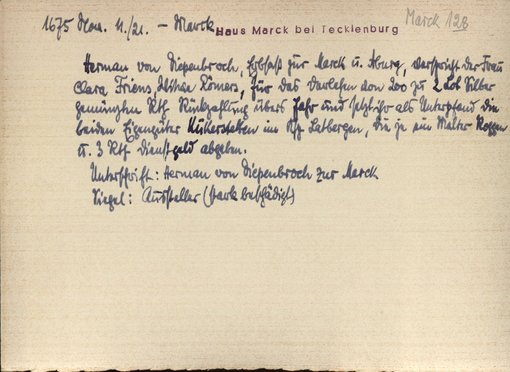 1675 Nov. 11./21. – Marck Haus Marck bei Tecklenburg Marck 128
Herman von Diepenbroch, Erbsaß zur Marck u. Iburg, verspricht der Frau
Clara Friens Witwe Römers, für das Darlehen von 200 zu 2 Silber
gemünzten Rtl Rückzahlung übers Jahr und setzt ihr als Unterpfand die
beiden Eigengüter im Ksp Ladbergen, die je ein Malter Roggen
u. 3 Rtl Dienstgeld abgeben.
Unterschrift: Herman von Diepenbroch zur Marck
Siegel: Aussteller (stark beschädigt)